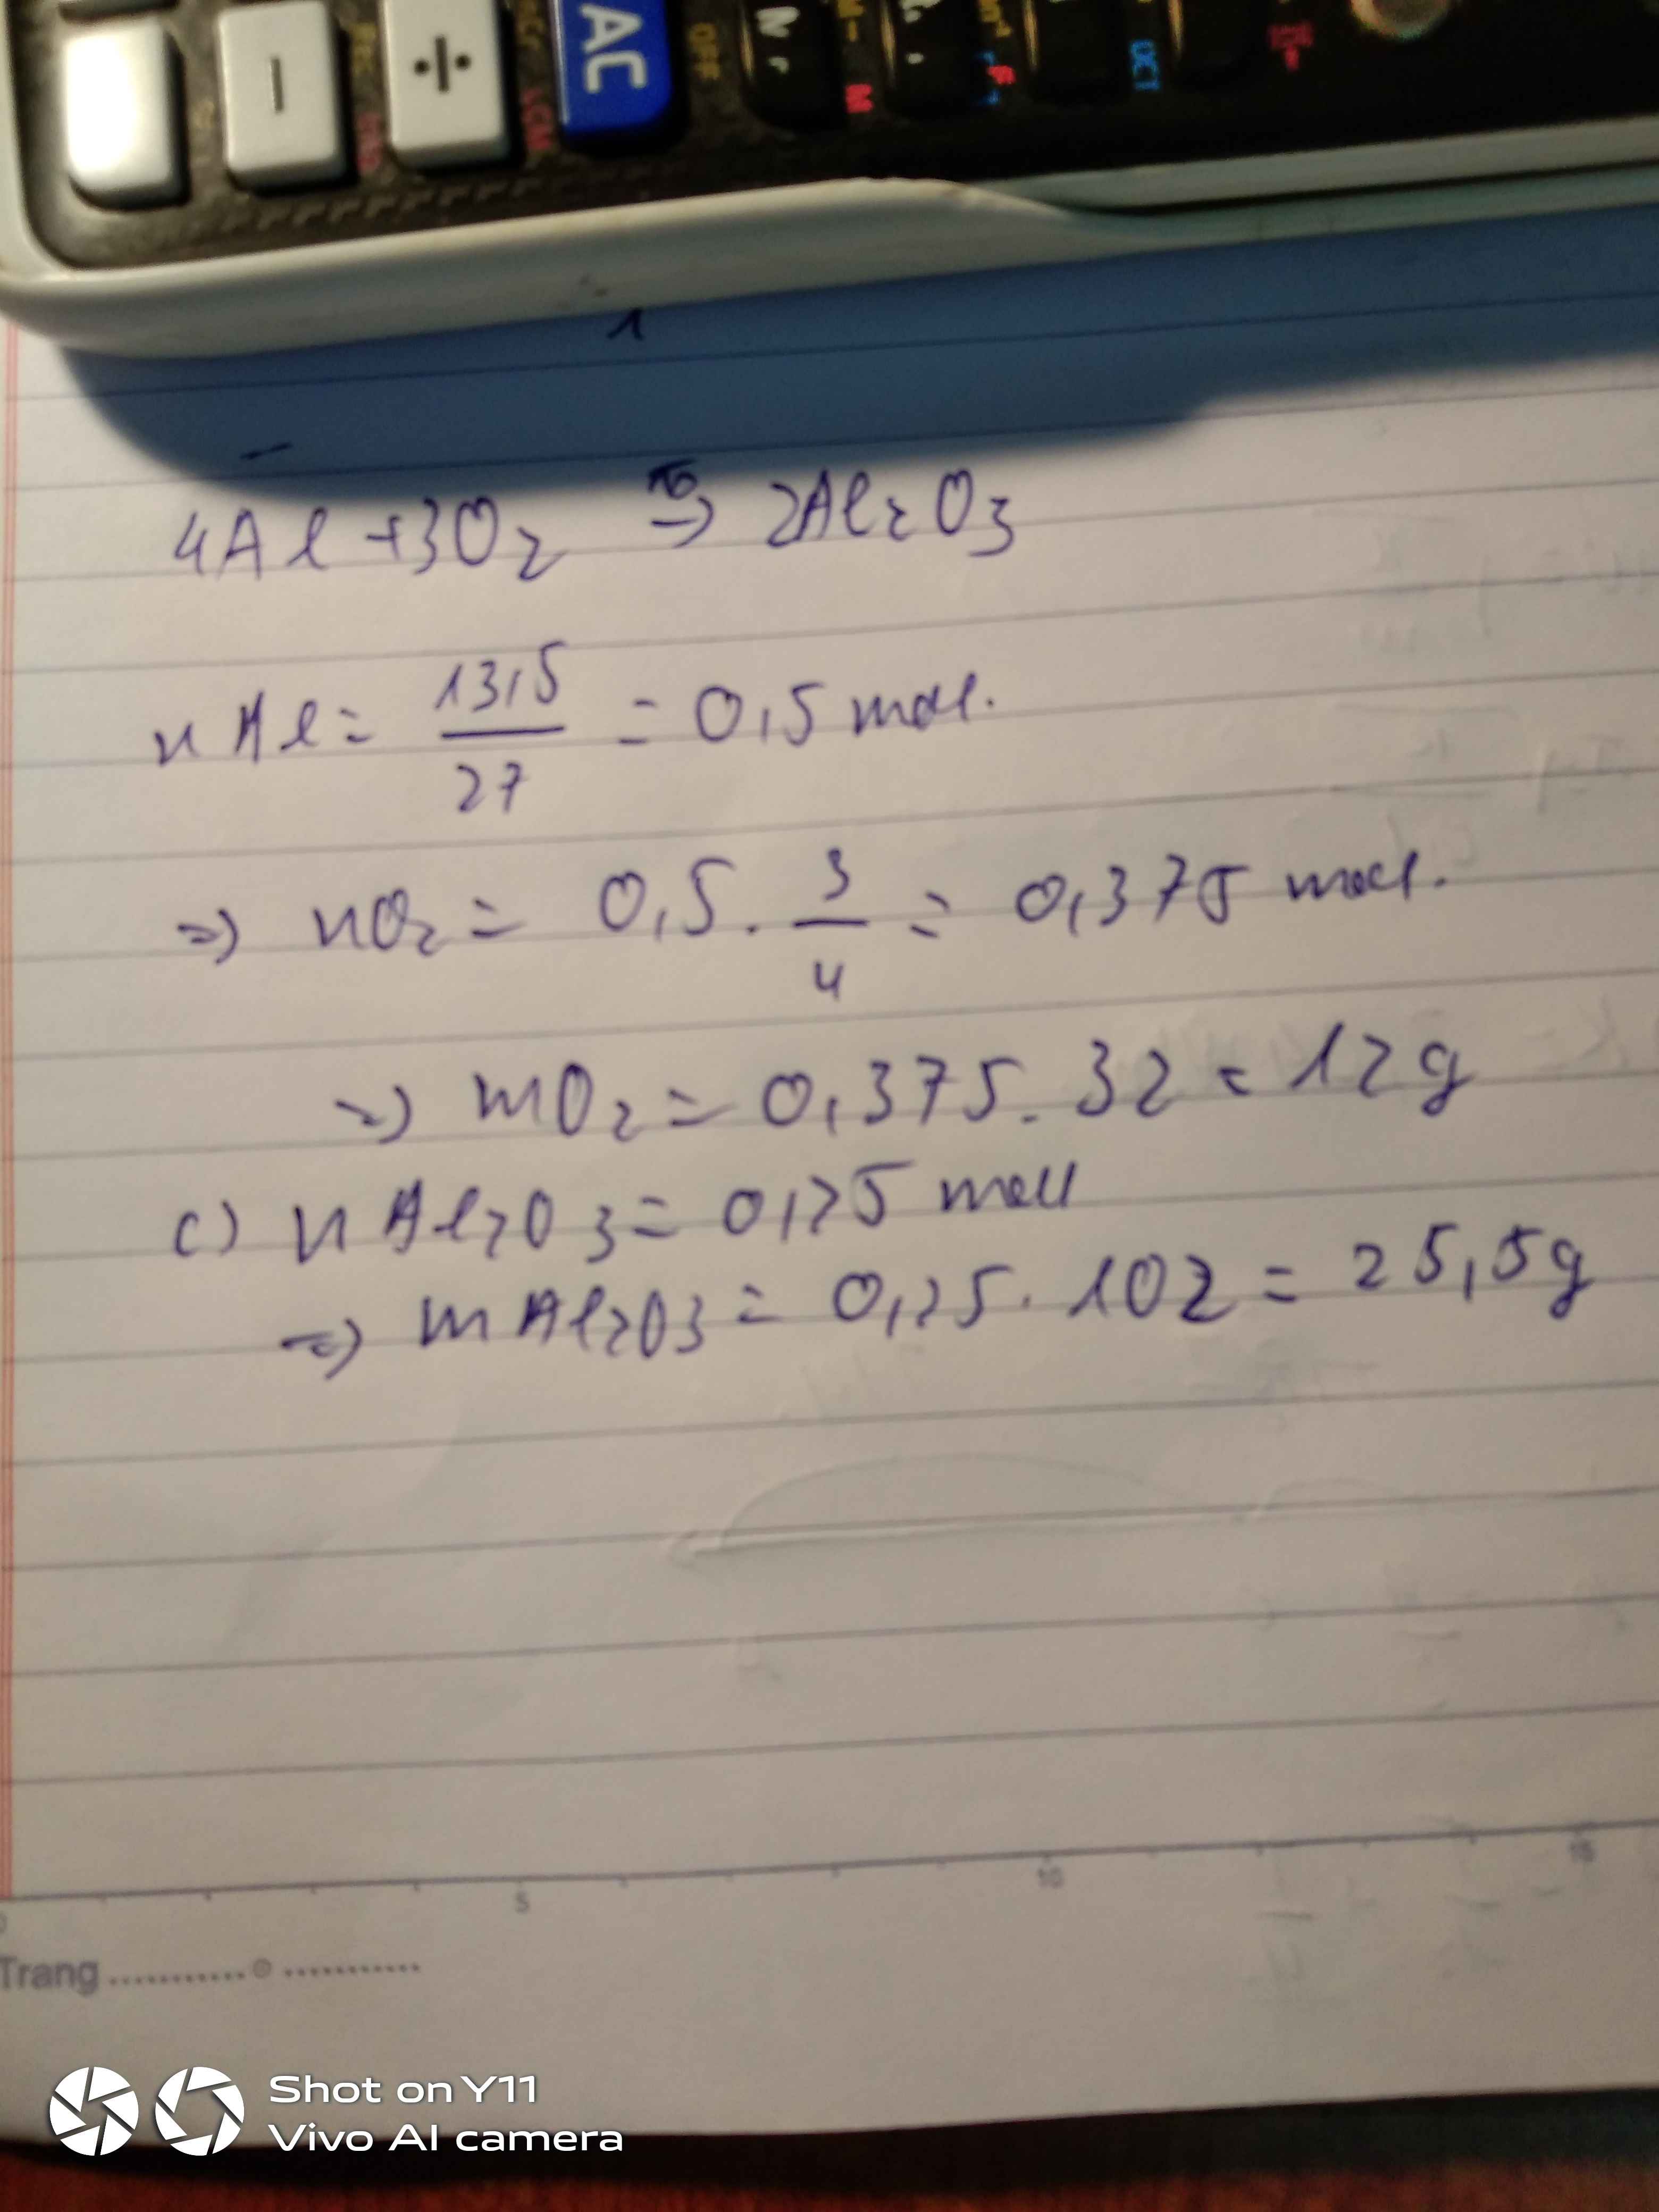 AC
OFF
M
4Al + 3O2 t° → 2Al2O3
nAl = 13,5 / 27 = 0,5 mol.
=> nO2 = 0,5 . 3 / 4 = 0,375 mol.
=> mO2 = 0,375 . 32 = 12g
c) nAl2O3 = 0,25 mol
=> mAl2O3 = 0,25 . 102 = 25,5g
5 10 15
Trang
Shot on Y11
Vivo AI camera